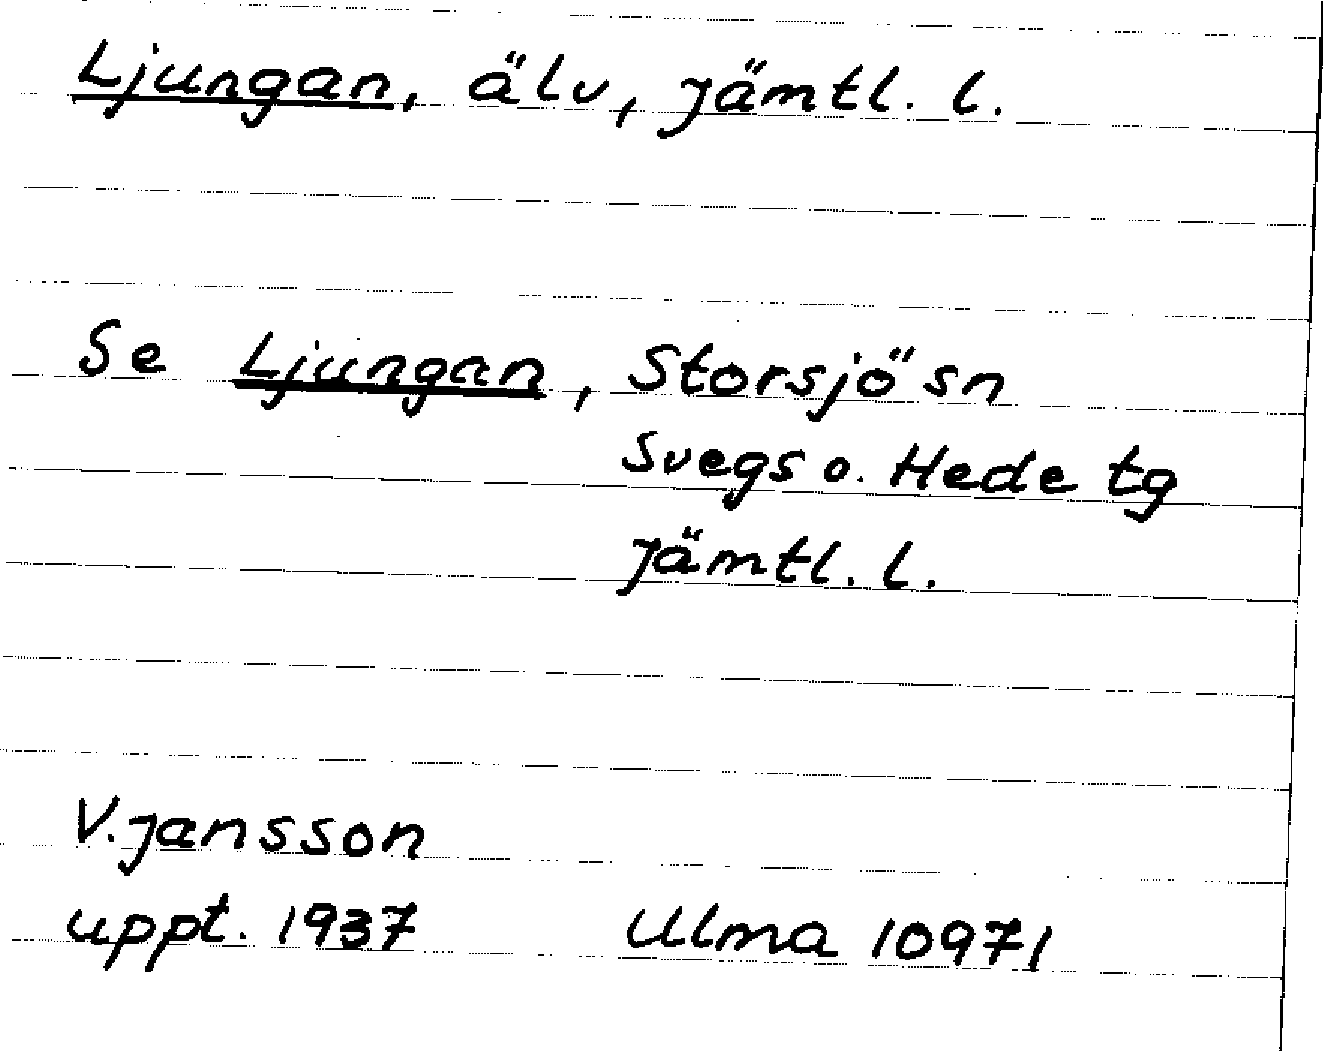 Ljungan, älv, Jämtl. l.
Se Ljungan, Storsjö sn
Svegs o. Hede tg
Jämtl. l.
V. Jansson
uppt. 1937 Ulma 10971